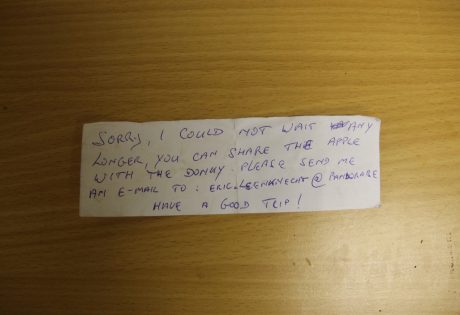 SORRY, I COULD NOT WAIT ANY
LONGER, YOU CAN SHARE THE APPLE
WITH THE DONKY. PLEASE SEND ME
AN E-MAIL TO: ERIC.LEENKNECHT@PANDORA.BE
HAVE A GOOD TRIP!